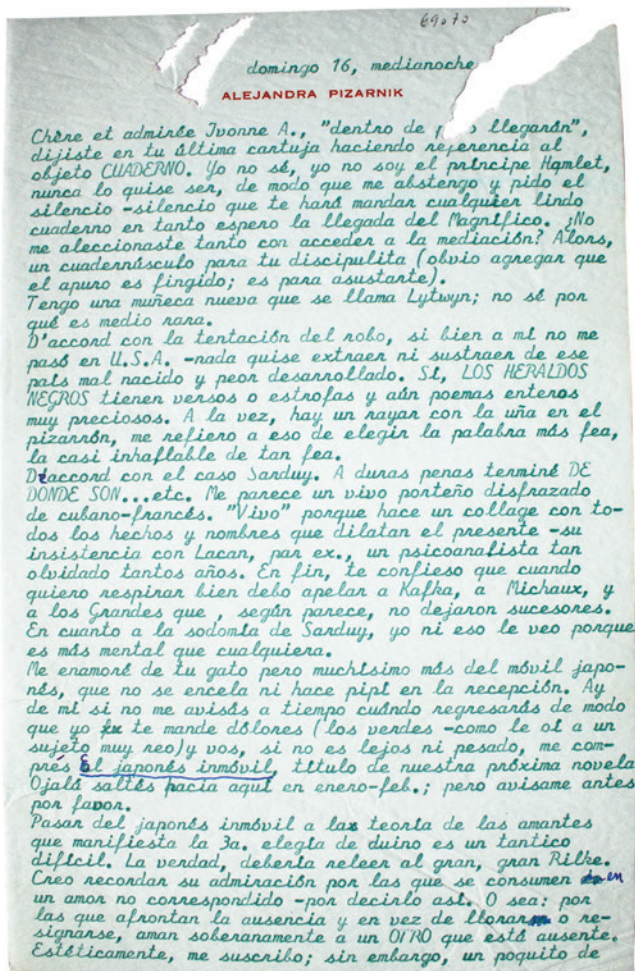 69.70
domingo 16, medianoche
ALEJANDRA PIZARNIK
Chère et admirée Ivonne A., "dentro de llegarán",
dijiste en tu última cartuja haciendo referencia al
objeto CUADERNO. Yo no sé, yo no soy el príncipe Hamlet,
nunca lo quise ser, de modo que me abstengo y pido el
silencio -silencio que te hará mandar cualquier lindo
cuaderno en tanto espero la llegada del Magnífico. ¿No
me aleccionaste tanto con acceder a la mediación? Alors,
un cuadernúsculo para tu discipulita (obvio agregar que
el apuro es fingido; es para asustarte).
Tengo una muñeca nueva que se llama Lytwyn; no sé por
qué es medio rara.
D'accord con la tentación del robo, si bien a mí no me
pasó en U.S.A. -nada quise extraer ni sustraer de ese
país mal nacido y peor desarrollado. Sí, LOS HERALDOS
NEGROS tienen versos o estrofas y aún poemas enteros
muy preciosos. A la vez, hay un rayar con la uña en el
pizarrón, me refiero a eso de elegir la palabra más fea,
la casi inhaflable de tan fea.
D'accord con el caso Sarduy. A duras penas terminé DE
DONDE SON...etc. Me parece un vivo porteño disfrazado
de cubano-francés. "Vivo" porque hace un collage con to-
dos los hechos y nombres que dilatan el presente -su
insistencia con Lacan, par ex., un psicoanalista tan
olvidado tantos años. En fin, te confieso que cuando
quiero respirar bien debo apelar a Kafka, a Michaux, y
a los Grandes que , según parece, no dejaron sucesores.
En cuanto a la sodomía de Sarduy, yo ni eso le veo porque
es más mental que cualquiera.
Me enamoré de tu gato pero muchísimo más del móvil japo-
nés, que no se encela ni hace pipí en la recepción. Ay
de mí si no me avisás a tiempo cuándo regresarás de modo
que yo te mande dólores (los verdes -como le oí a un
sujeto muy reo)y vos, si no es lejos ni pesado, me com-
prés El japonés inmóvil, título de nuestra próxima novela
Ojalá saltés hacia aquí en enero-feb.; pero avisame antes
por favor.
Pasar del japonés inmóvil a la teoría de las amantes
que manifiesta la 3a. elegía de duino es un tantico
difícil. La verdad, debería releer al gran, gran Rilke.
Creo recordar su admiración por las que se consumen en
un amor no correspondido -por decirlo así. O sea: por
las que afrontan la ausencia y en vez de llorar o re-
signarse, aman soberanamente a un OTRO que está ausente.
Estéticamente, me suscribo; sin embargo, un poquito de